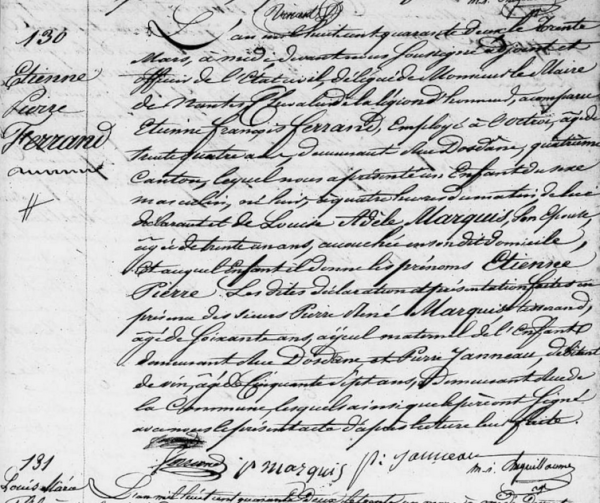 130
Etienne
Pierre
Ferrand
L'an mil huit cent quarante deux le trente
Mars, à midi devant nous soussigné adjoint et
officier de l'Etat civil, délégué de Monsieur le Maire
de Nantes, Chevalier de la légion d'honneur, a comparu
Etienne François Ferrand, Employé à l'octroi, âgé de
trente quatre ans, demeurant Rue Dosdane, quatrième
Canton, lequel nous a présenté un Enfant du sexe
masculin, né hier, à quatre heures du matin de lui
déclarant et de Louise Adèle Marquis, son épouse,
âgée de trente un ans, accouchée en son dit domicile,
Et auquel Enfant il donne les prénoms Etienne
Pierre. Les dites déclaration et présentation faites en
présence des sieurs Pierre René Marquis tisserand,
âgé de soixante ans, aïeul maternel de l'Enfant
demeurant Rue Dosdane et Pierre Janneau, débitant
de vin, âgé de Cinquante sept ans, Demeurant Rue de
la Commune, lesquels ainsi que le père ont signé
avec nous le présent acte d'après lecture leur faite.
Ferrand p marquis pi. janneau
131
L'an mil huit cent quarante Deux le trente